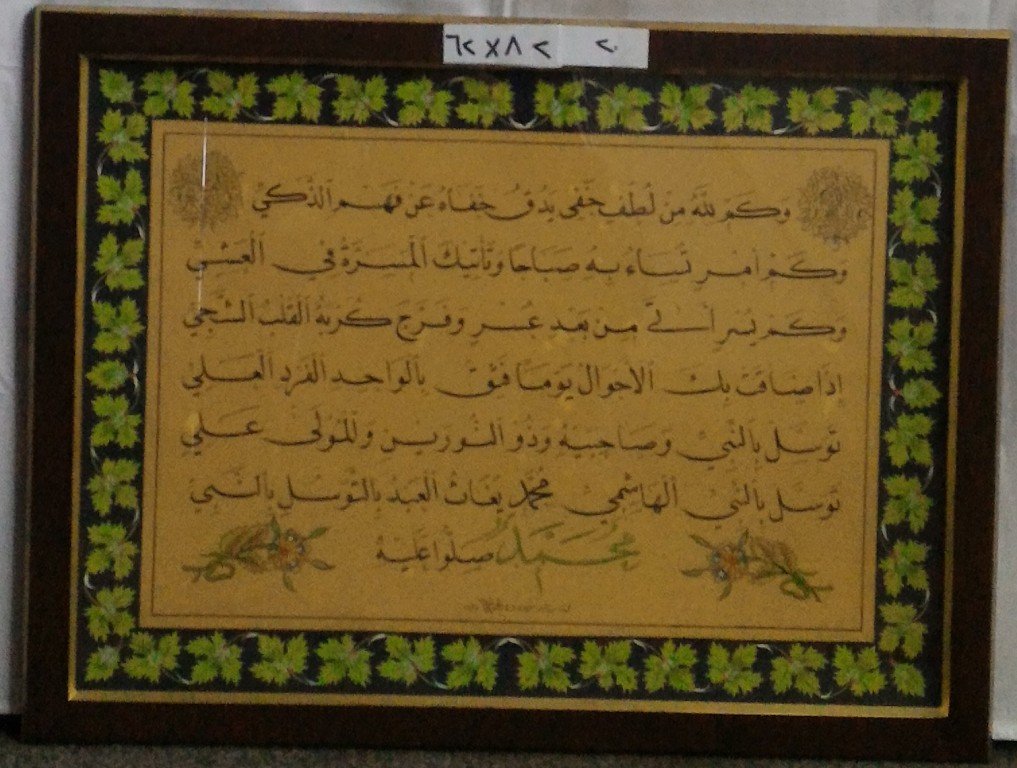 ٦٢x٨٢ ٢٠
وَكَمْ لِلَّهِ مِنْ لُطْفٍ خَفِي يَدُقُّ خَفَاهُ عَنْ فَهْمِ الذَّكِيِّ
وَكَمْ أَمْرٍ تُسَاءُ بِهِ صَبَاحًا وَتَأْتِيكَ الْمَسَرَّةُ فِي الْعَشِيِّ
وَكَمْ يُسْرٍ أَتَى مِنْ بَعْدِ عُسْرٍ وَفَرَّجَ كُرْبَةَ الْقَلْبِ الشَّجِيِّ
إِذَا ضَاقَتْ بِكَ الْأَحْوَالُ يَوْمًا فَثِقْ بِالْوَاحِدِ الْفَرْدِ الْعَلِيِّ
تَوَسَّلْ بِالنَّبِيِّ وَصَاحِبَيْهِ وَذُو النُّورَيْنِ وَالْمَوْلَى عَلِي
تَوَسَّلْ بِالنَّبِيِّ الْهَاشِمِيِّ مُحَمَّد يُغَاثُ الْعَبْدُ بِالتَّوَسُّلِ بِالنَّبِيِّ
مُحَمَّد صَلُّوا عَلَيْهِ